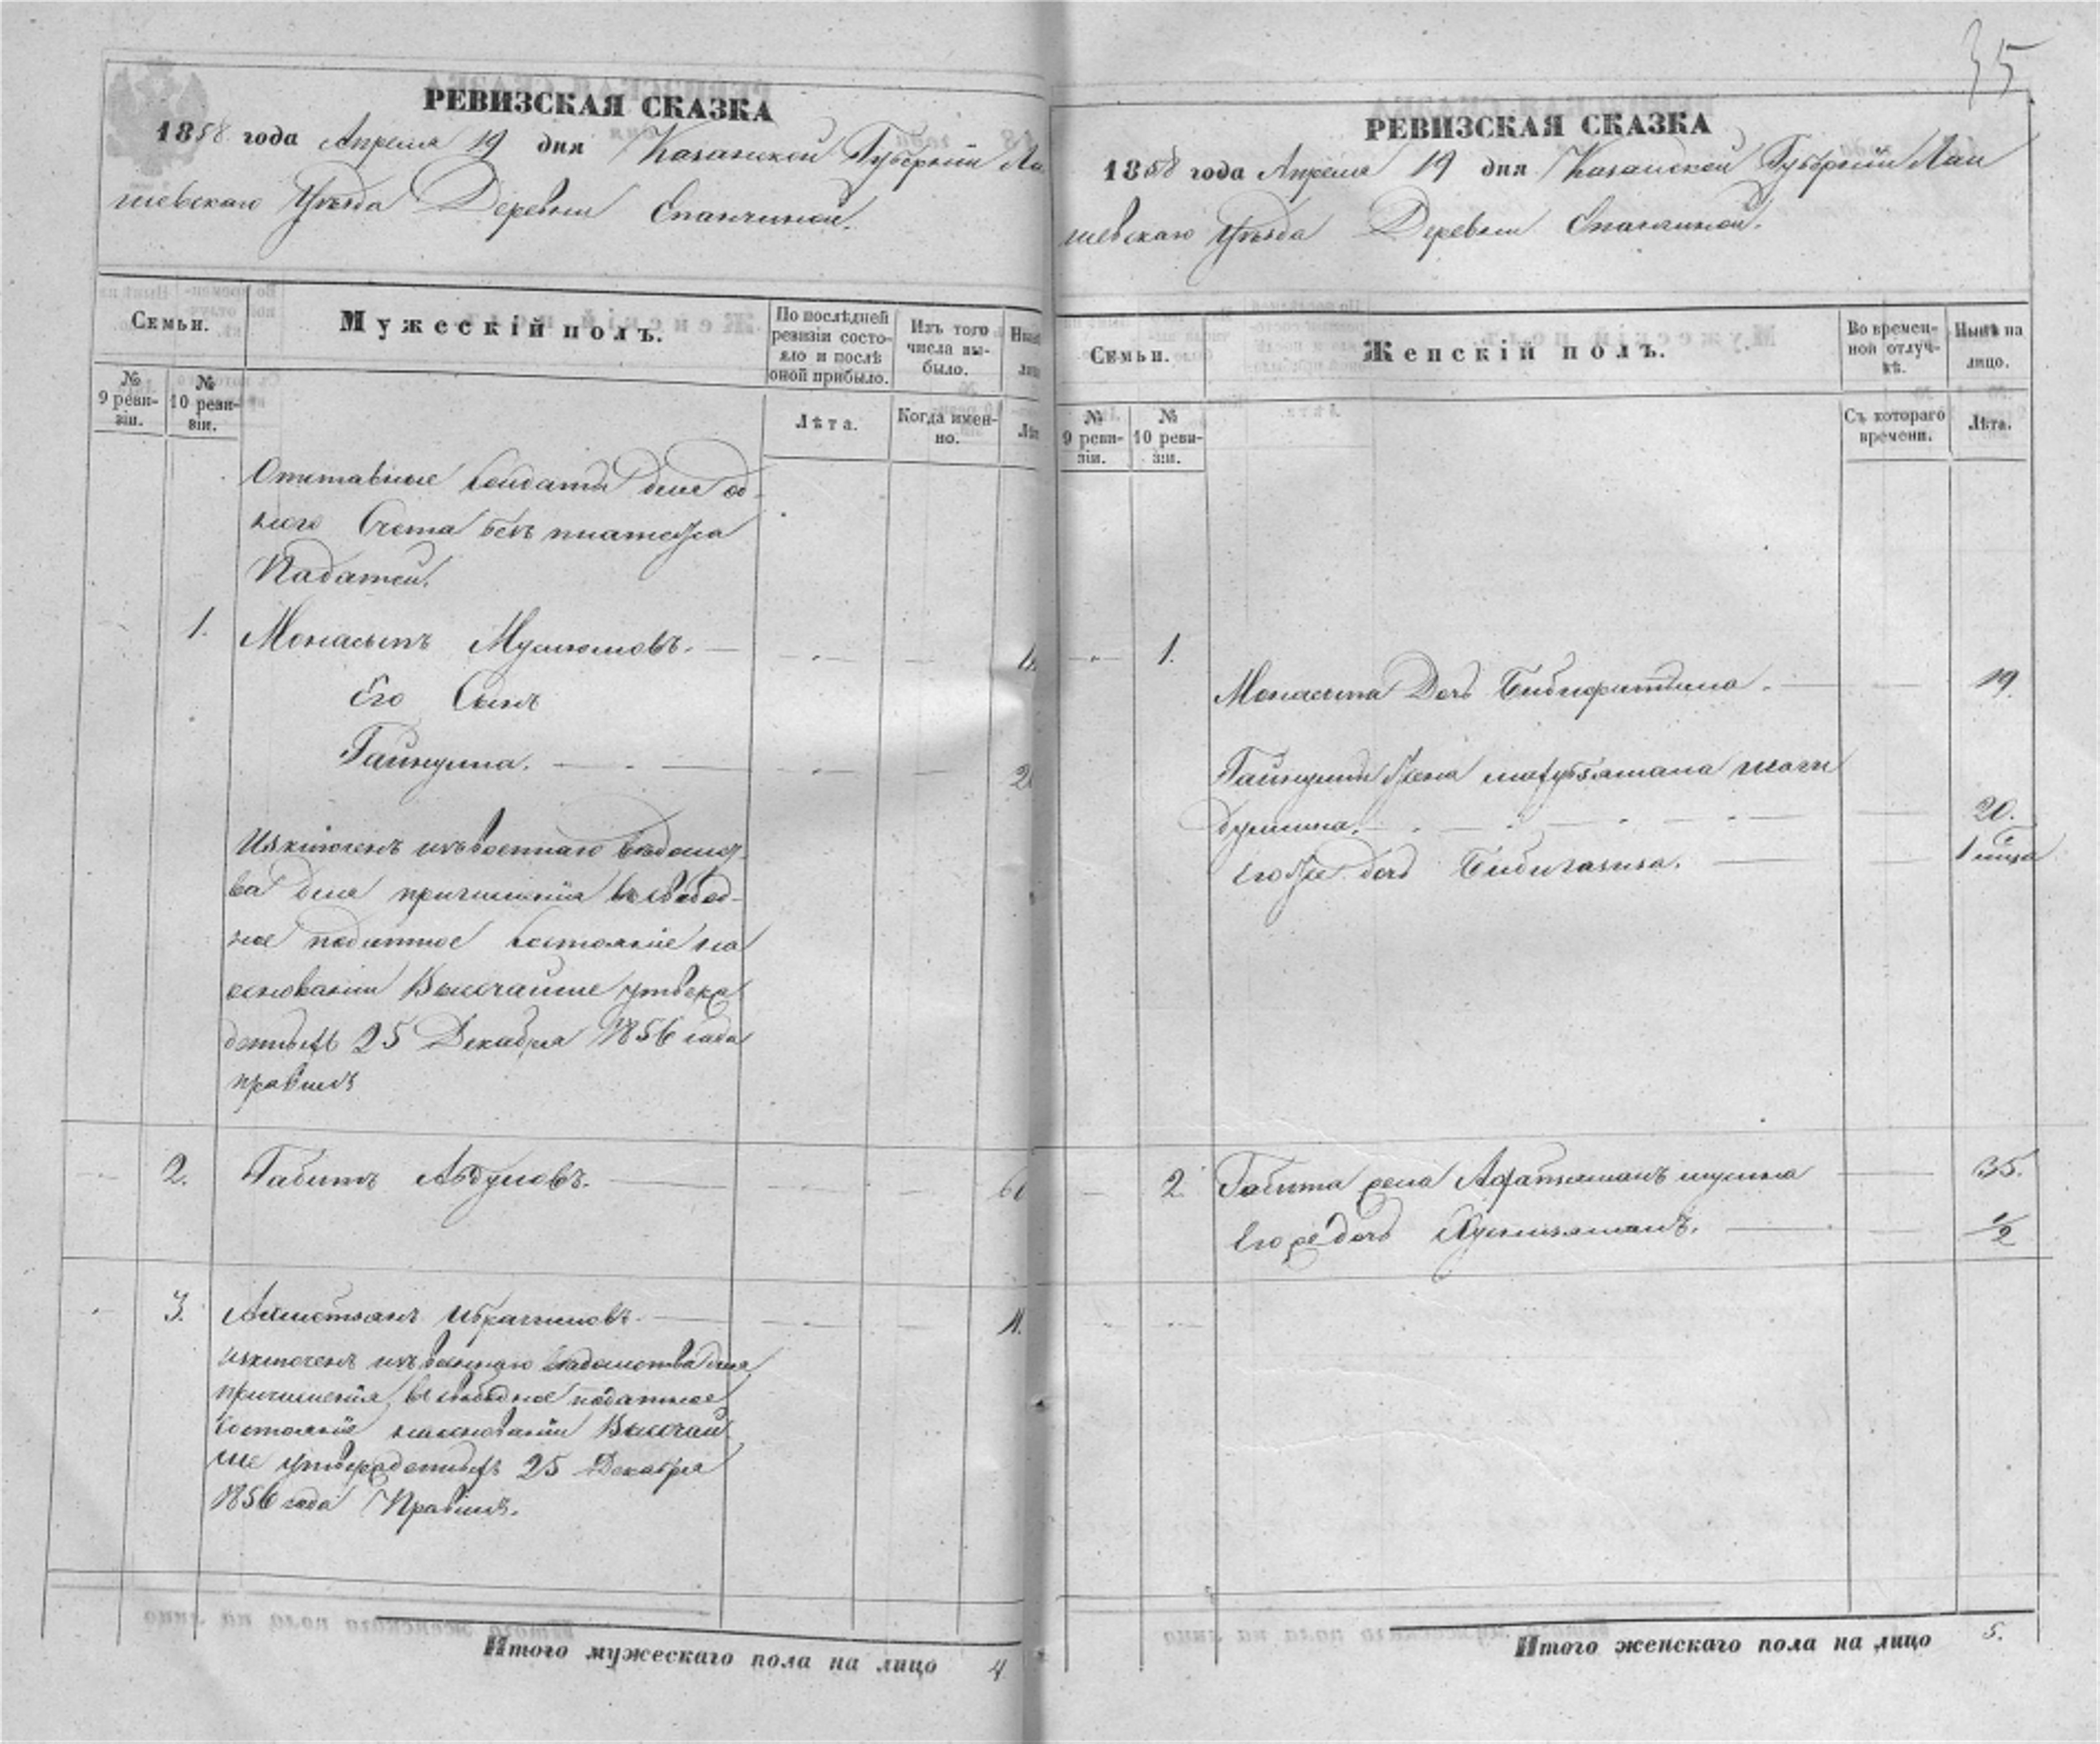 РЕВИЗСКАЯ СКАЗКА
1858 года Апреля 19 дня Казанской Губернiи Ла
шевскаго Уѣзда Деревни Епанчиной.
Семьи.
Мужескiй полъ.
По послѣдней ревизiи состояло и послѣ оной прибыло.
Изъ того числа выбыло.
№ 9 ревизiи.
№ 10 ревизiи.
Лѣта.
Когда именно.
Отставные солдаты для од-
ного Счета безъ платежа
Падатей.
1. Монасыпъ Муслюмовъ.
Его Сынъ
Гайнулла.
Изключенъ изъ военнаго вѣдомст-
ва для причисленiя въ свобод-
ное податное состоянiе на
основанiи Высочайше утверж
денныхъ 25 Декабря 1856 года
правилъ
2. Габитъ Абдуловъ.
3. Ахметзянъ Ибрагимовъ.
изключенъ изъ военнаго вѣдомства для
причисленiя въ свободное податное
состоянiе на основанiи Высочай
ше утвержденныхъ 25 Декабря
1856 года Правилъ.
Итого мужескаго пола на лицо 4
35
РЕВИЗСКАЯ СКАЗКА
1858 года Апреля 19 дня Казанской Губернiи Лаи
шевскаго Уѣзда Деревни Епанчиной.
Семьи.
Женскiй полъ.
Во временной отлучкѣ.
Нынѣ на лицо.
№ 9 ревизiи.
№ 10 ревизiи.
Съ котораго времени.
Лѣта.
1.
Монасыпа Дочь 19.
Гайнуллы жена
20.
его же дочь 1
2. Габита жена 35.
его же дочь 1/2
Итого женскаго пола на лицо 5.